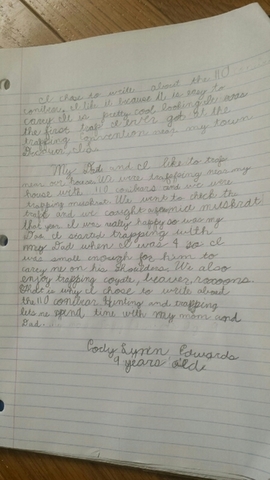 I chose to write about the 110
conibear. I like it because it is easy to
carry. It is pretty cool looking. It was
the first trap I ever got at the
trapping convention near my town
My Dad and I like to trap
near our house. We were trapping near my
house with 110 conibears and we were
trapping muskrat. We went to check the
traps and we caught muskrat
that year. I was really happy so was my
Dad. I started trapping with
my Dad when I was 4 so I
was small enough for him to
carry me on his shoulders. We also
enjoy trapping coyote, beaver,
that is why I chose to write about
the 110 conibear. Hunting and trapping
lets me spend time with my mom and
Dad.
Cody Edwards
9 years old